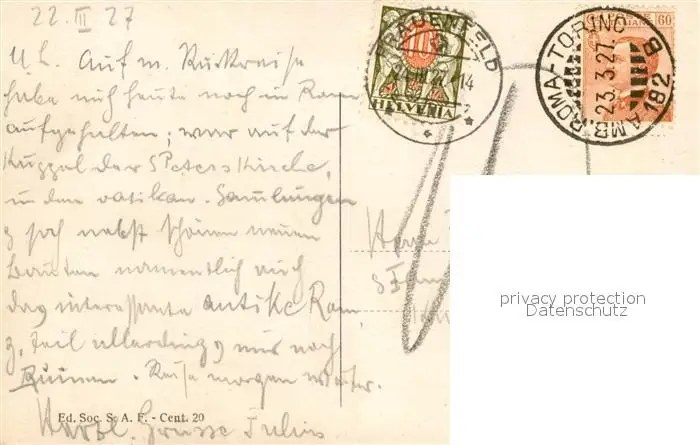 22. III 27
U. L. Auf m. Rückreise
habe mich heute noch in Rom
aufgehalten, war auf der
Kuppel der S Peterskirche,
in den vatikan. Sammlungen
& sah nebst schönen neuen
Bauten namentlich auch
das interessante antike Rom,
z. Teil allerdings nur noch
Ruinen. Reise morgen weiter.
Herzl. Grüsse Julius
Ed. Soc. S. A. F. - Cent. 20
FRAUENFELD
14
10
HELVETIA
60
AMB. ROMA-TORINO B
23.3.27.
182
Herrn
privacy protection
Datenschutz